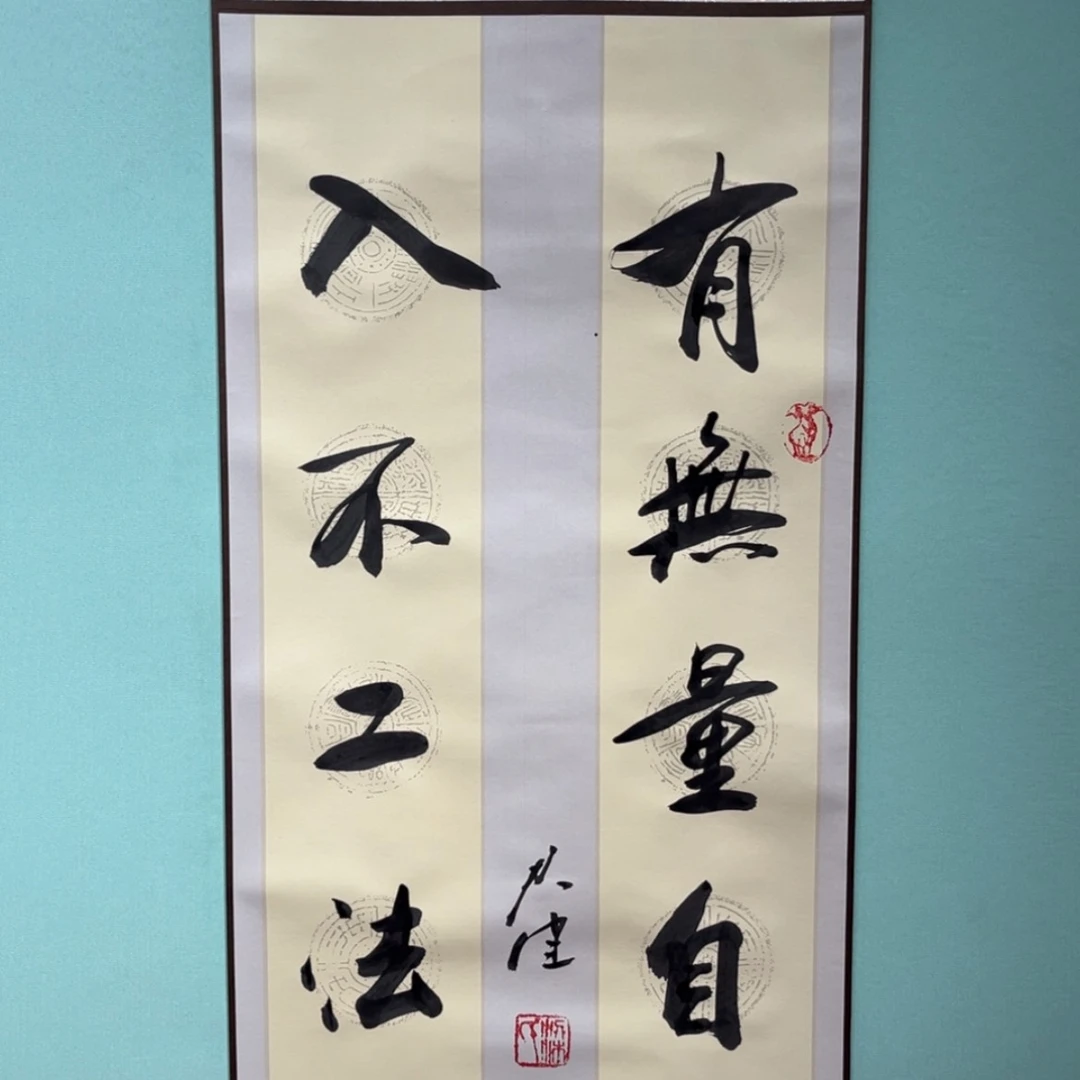 有無量自
入不工法